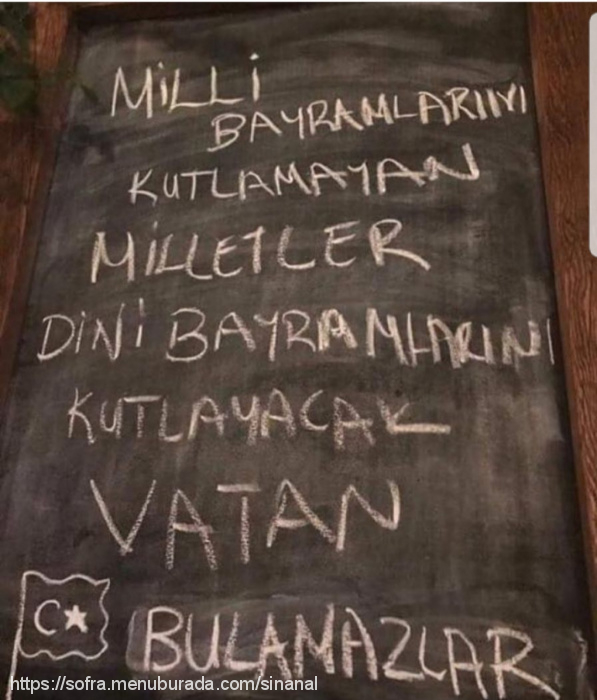 MiLLi
BAYRAMLARINI
KUTLAMAYAN
MiLLETLER
DiNi BAYRAMLARINI
KUTLAYACAK
VATAN
BULAMAZLAR
https://sofra.menuburada.com/sinanal